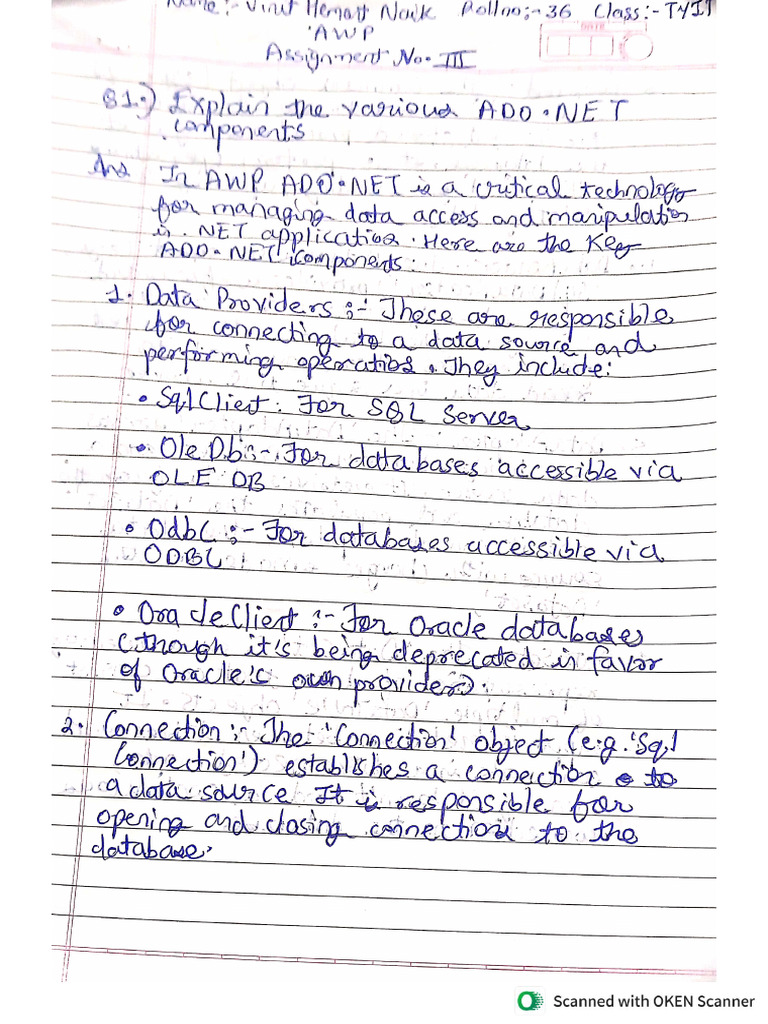 Name:- Vinit Hemant Naik Roll no:-36 Class:- TYIT
AWP
DATE
Assignment No. III
Q1.) Explain the various ADO.NET
components
Ans In AWP ADO.NET is a critical technology
for managing data access and manipulation
in .NET application. Here are the Key
ADO.NET components:
1. Data Providers :- These are responsible
for connecting to a data source and
performing operations. They include:
• SqlClient: For SQL Server
• OleDb:- For databases accessible via
OLE DB
• Odbc :- For databases accessible via
ODBC
• OracleClient :- For Oracle databases
(though it's being deprecated in favor
of Oracle's own provider).
2. Connection:- The 'Connection' object (e.g.'Sql
Connection') establishes a connection to
a data source It is responsible for
opening and closing connection to the
database.
Scanned with OKEN Scanner